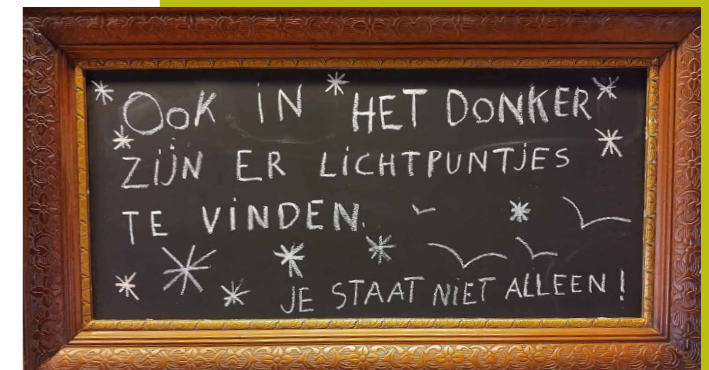 OOK IN HET DONKER
ZIJN ER LICHTPUNTJES
TE VINDEN.
JE STAAT NIET ALLEEN!